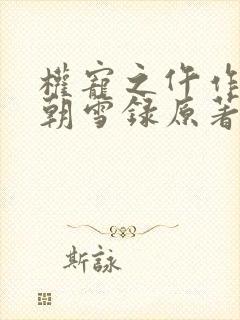 權寵之仵作
朝雪録原著
斯詠